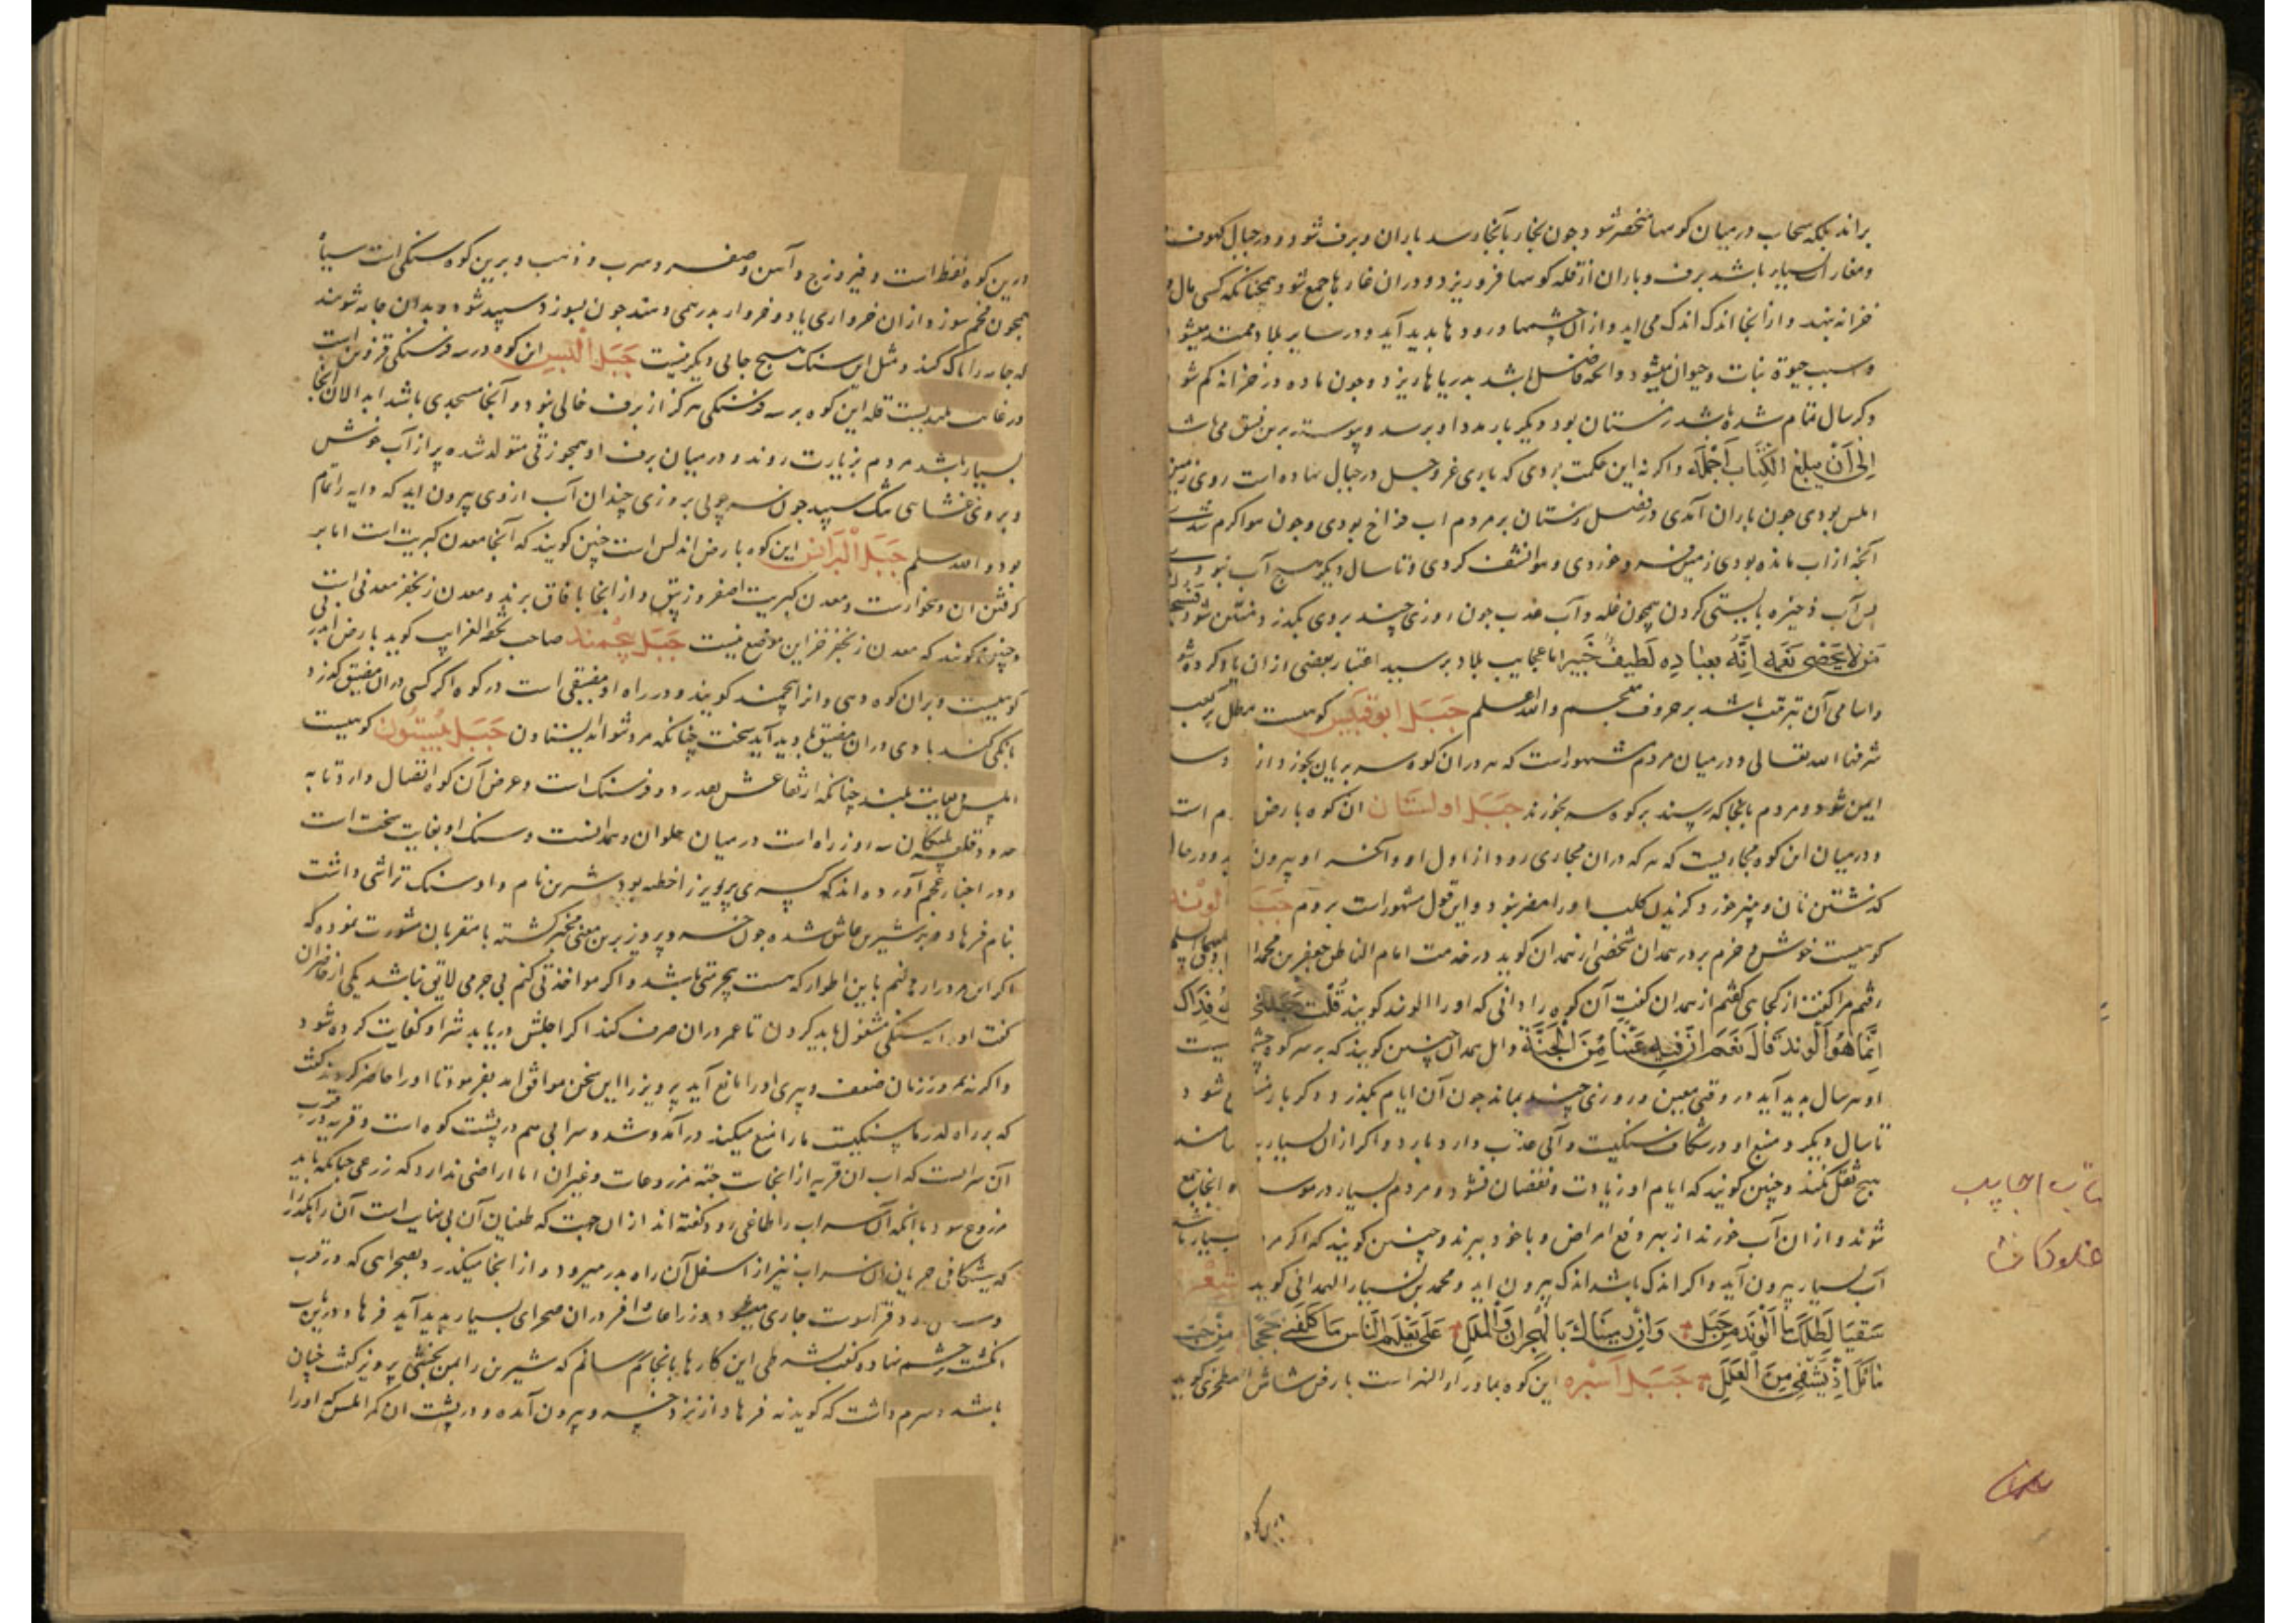 براند بلکه سحاب در میان کوهها منحصر شود و جون بخار بآنجا رسد باران و برف شود و در جبال کهوف
و مغارات بسیار باشد برف و باران از قله کوهها فرو ریزد و در ان غارها جمع شود همچنانکه کسی مال
خزانه نهد و از انجا اندک اندک می آید و از ان چشمها و رودها بدید آید و در سایر بلاد ممتد میشود
و سبب حیوة نبات و حیوان میشود و انچه فاضل باشد بدریاها ریزد و جون ماده در خزانه کم شود
و کر سال تمام شده باشد زمستان بود دیگر بار مدد او برسد و پیوسته برین نسق می باشد
الی ان یبلغ الکتاب اجله و اکر نه این حکمت بودی که باری عز و جل در جبال نهاده است روی زمین
املس بودی جون باران آمدی در فصل زمستان بر مردم اب فراخ بودی و جون هوا کرم شدی
آنچه از اب مانده بودی زمین فرو خوردی و هوا نشف کردی و تا سال دیکر هیچ آب نبودی
پس آب ذخیره بایستی کردن همچون غله و آب عذب جون روزی چند بروی بکذرد منتن شود فسبحان
من لا یحصی نعمه انه بعباده لطیف خبیر اما عجایب بلاد بر سبیل اعتبار بعضی از ان یاد کرده شود
و اسامی آن مترتب باشد بر حروف معجم والله اعلم جبل ابو قبیس کوهیست مطل بر کعبه
شرفها الله تعالی و در میان مردم مشهور است که هر در ان کوه سر بریان بخورد از
ایمن شود و مردم بانجا که رسند بر کوه سر بخورند جبل اولستان ان کوه بارض
و در میان این کوه مجاریست که هر که در ان مجاری رود از اول او و آخر او بیرون
کذشتن نان و پنیر خورد کزیدن کلب او را مضر نبود و این قول مشهور است بروم
کوهیست خوش و خرم بر در همدان شخصی از همدان کوید در خدمت امام الناطق جعفر بن محمد
رفتم مرا کفت از کجای کفتم از همدان کفت آن کوه را دانی که او را الوند کویند قلت جعلنی فداک
انما هو الوند قال نعم ان فیه عینا من الجنة و اهل همدان چنین کویند که بر سر کوه
او هر سال بدید آید در وقتی معین و روزی چند بماند جون آن ایام بکذرد دکر بار
تا سال دیکر و منبع او در شکاف سنکیست و آبی عذب دارد بارد و اکر از ان بسیار
هیچ ثقل نکند و چنین کویند که ایام او زیادت و نقصان نشود و مردم بسیار در موسم انجا جمع
شوند و از ان آب خورند از بهر دفع امراض و با خود ببرند و چنین کویند که اکر مردم بسیار
آب بسیار بیرون آید و اکر اندک باشد اندک بیرون اید و محمد بن بشار الهمدانی کوید شعر
سقیا لظلک یا الوند من جبل و ان رمیناک بالهجران و الملل علی تعلم الناس ما کلفنی حججا من حب
مائک اذ یشفی من العلل جبل اسبره این کوه بماوراء النهر است بارض شاش اصطخری کوید
درین کوه
درین کوه نفط است و فیروزج و آهن و صفر و سرب و ذهب و برین کوه سنکی است سیاه
همچون فحم بسوزد از ان خرواری یا دو خروار بدرهمی دهند جون بسوزد سپید شود و بدان جامه شویند
که جامه را پاک کند و مثل این سنک بهیچ جایی دیکر نیست جبل البیس این کوه در سه فرسنکی قزوین است
در غایت بلندیست قله این کوه بر سه فرسنکی هرکز از برف خالی نبود و آنجا مسجدی باشد ابدالان آنجا
بسیار باشد مردم بزیارت روند و در میان برف او همجو زقی متولد شده پر از آب خوش
و بر وی غشای تنک سپید جون سر چوبی بروزی چندان آب از وی بیرون اید که دابه را تمام
بود والله اعلم جبل البرانس این کوه بارض اندلس است چنین کویند که آنجا معدن کبریت است اما بر
کرفتن ان دشخوارست و معدن کبریت اصفر و زیبق و از انجا بافاق برند و معدن زنجفر معدنی است
و چنین کویند که معدن زنجفر جز این موضع نیست جبل بجمند صاحب تحفه الغرایب کوید بارض
کوهیست و بران کوه دهی و انرا بجمند کویند و در راه او مضیقی است در کوه اکر کسی در ان مضیق کذرد
بانکی کند بادی در ان مضیق بدید آید سخت چنانکه مرد نتواند ایستادن جبل بیستون کوهیست
املس بغایت بلند چنانکه ارتفاعش بقدر دو فرسنک است و عرض آن کوه اتصال دارد تا به
حدود قلعه سه روز راه است در میان حلوان و همدانست و سنک او بغایت سخت است
و در اخبار عجم آورده اند که کسری پرویز را خطیه بود شیرین نام و او سنک تراشی داشت
بنام فرهاد و بر شیرین عاشق شده جون خسرو پرویز برین معنی مخبر کشته با مقربان مشورت نموده که
اکر این مرد را رها کنم باین اطوار که هست بیحرمتی باشد و اکر مواخذتی کنم بی جرمی لایق نباشد یکی از حاضران
کفت او را به سنکی مشغول باید کردن تا عمر در ان صرف کند اکر اجلش دریابد شر او کفایت کرده شود
و اکر نه مرور زمان ضعف و پیری او را مانع آید پرویز را این سخن موافق امد بفرمود تا او را حاضر کردند کفت
که بر راه کذر ما سنکیست ما را منع میکند در آمد و شد و سرابی هم در پشت کوه است و قریه در قرب
آن سرابست که اب ان قریه از انجاست جهة مزروعات و غیران اما اراضی ندارد که زرعی چنانکه باید
مزروع شود با انکه آن سراب را طاغی رود کفته اند از ان جهت که طغیان آن بی نهایت است آن را بکذر
که بشکافی جریان آن سراب نیز از اسفل آن راه بدر میرود و از انجا میکذرد بصحرایی که در قرب
جاری میشود و زراعات وافر در ان صحرای بسیار بدید آید فرهاد در زمین
انکشت بر چشم نهاد و کفت بشرطی این کارها بانجام رسانم که شیرین را بمن بخشی پرویز کفت چنان
باشد و شرم داشت که کوید نه فرهاد از نزد خسرو بیرون آمده و در پشت ان کمر املس که او را